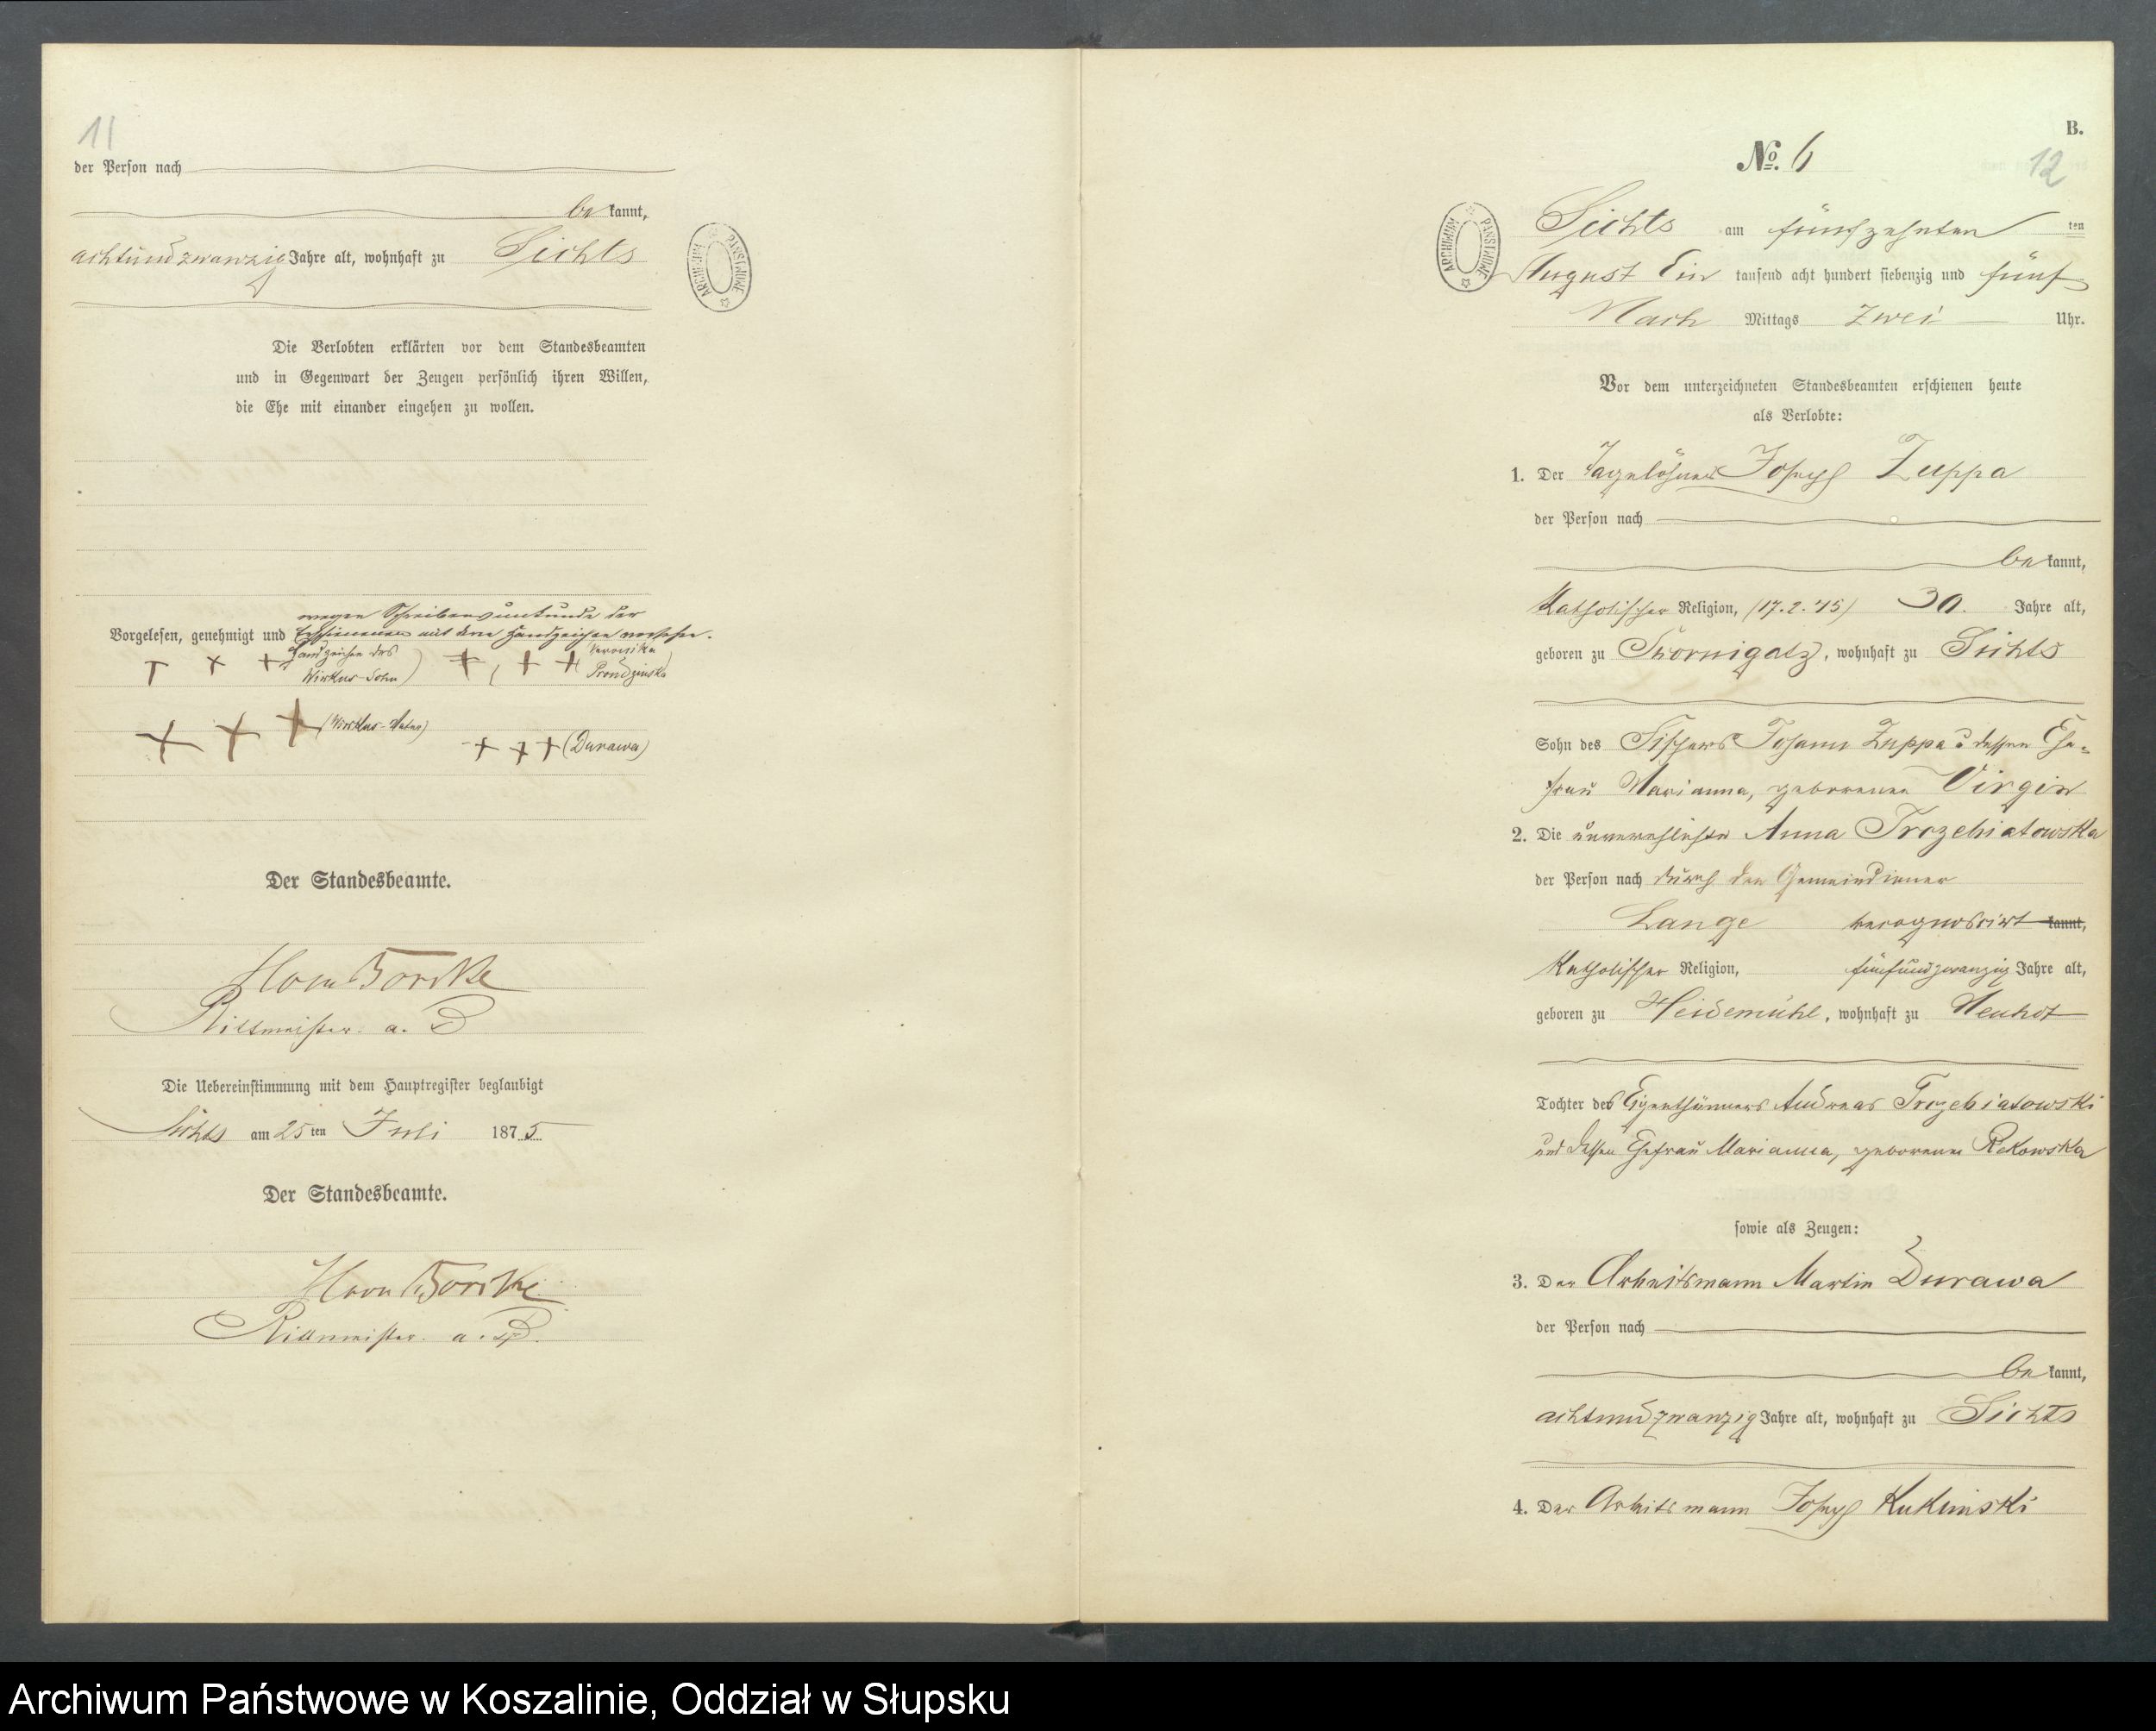 11
der Person nach
be kannt,
achtundzwanzig Jahre alt, wohnhaft zu Lichts
Die Verlobten erklärten vor dem Standesbeamten
und in Gegenwart der Zeugen persönlich ihren Willen,
die Ehe mit einander eingehen zu wollen.
wegen Schreibensunkunde der
Vorgelesen, genehmigt und Erschienenen mit ihren Handzeichen versehen.
+ + + Handzeichen des Wirkus-Sohn) + ( + + Veronika Prondzinska)
+ + + (Wirkus-Vater)
+ + + (Durawa)
Der Standesbeamte.
Borcke
Rittmeister a. D
Die Uebereinstimmung mit dem Hauptregister beglaubigt
Lichts am 25 ten Juli 1875
Der Standesbeamte.
Borcke
Rittmeister a. D.
ARCHIWUM PAŃSTWOWE
B.
No. 6
12
ARCHIWUM PAŃSTWOWE
Lichts am fünfzehnten ten
August Ein tausend acht hundert siebenzig und fünf
Nach Mittags zwei Uhr.
Vor dem unterzeichneten Standesbeamten erschienen heute
als Verlobte:
1. Der Tagelöhner Joseph Zuppa
der Person nach
be kannt,
Katholischer Religion, (17.2.45) 30. Jahre alt,
geboren zu Skornigatz, wohnhaft zu Lichts
Sohn des Fischers Johann Zuppa u dessen Ehe-
frau Marianna, geborenen Virgin
2. Die unverehlichte Anna Trzebiatowska
der Person nach durch den Gemeindiener
Lange recognoscirt kannt,
Katholischer Religion, fünfundzwanzig Jahre alt,
geboren zu Heidemühl, wohnhaft zu Neuhof
Tochter des Eigenthümers Andreas Trzebiatowski
und dessen Ehefrau Marianna, geborenen Rekowska
sowie als Zeugen:
3. Der Arbeitsmann Martin Durawa
der Person nach
be kannt,
achtundzwanzig Jahre alt, wohnhaft zu Lichts
4. Der Arbeitsmann Joseph Kukinski
Archiwum Państwowe w Koszalinie, Oddział w Słupsku